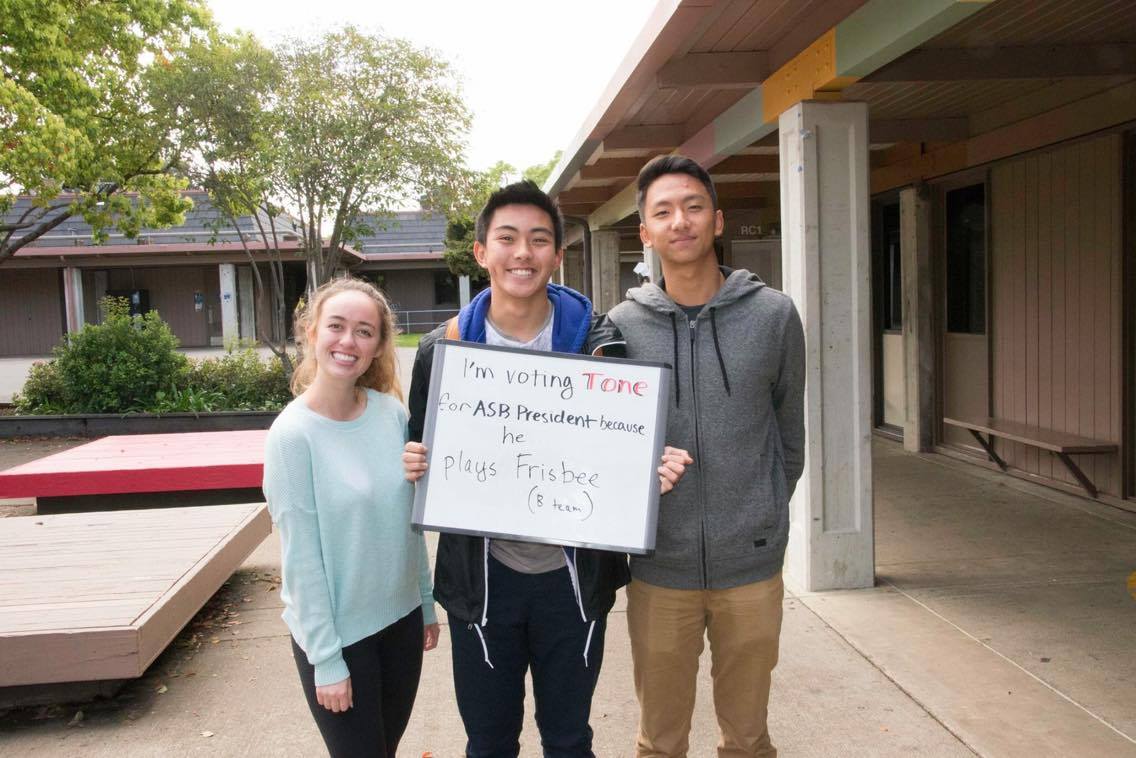 RC1
I'm voting Tone
for ASB President because
he
plays Frisbee
(B team)